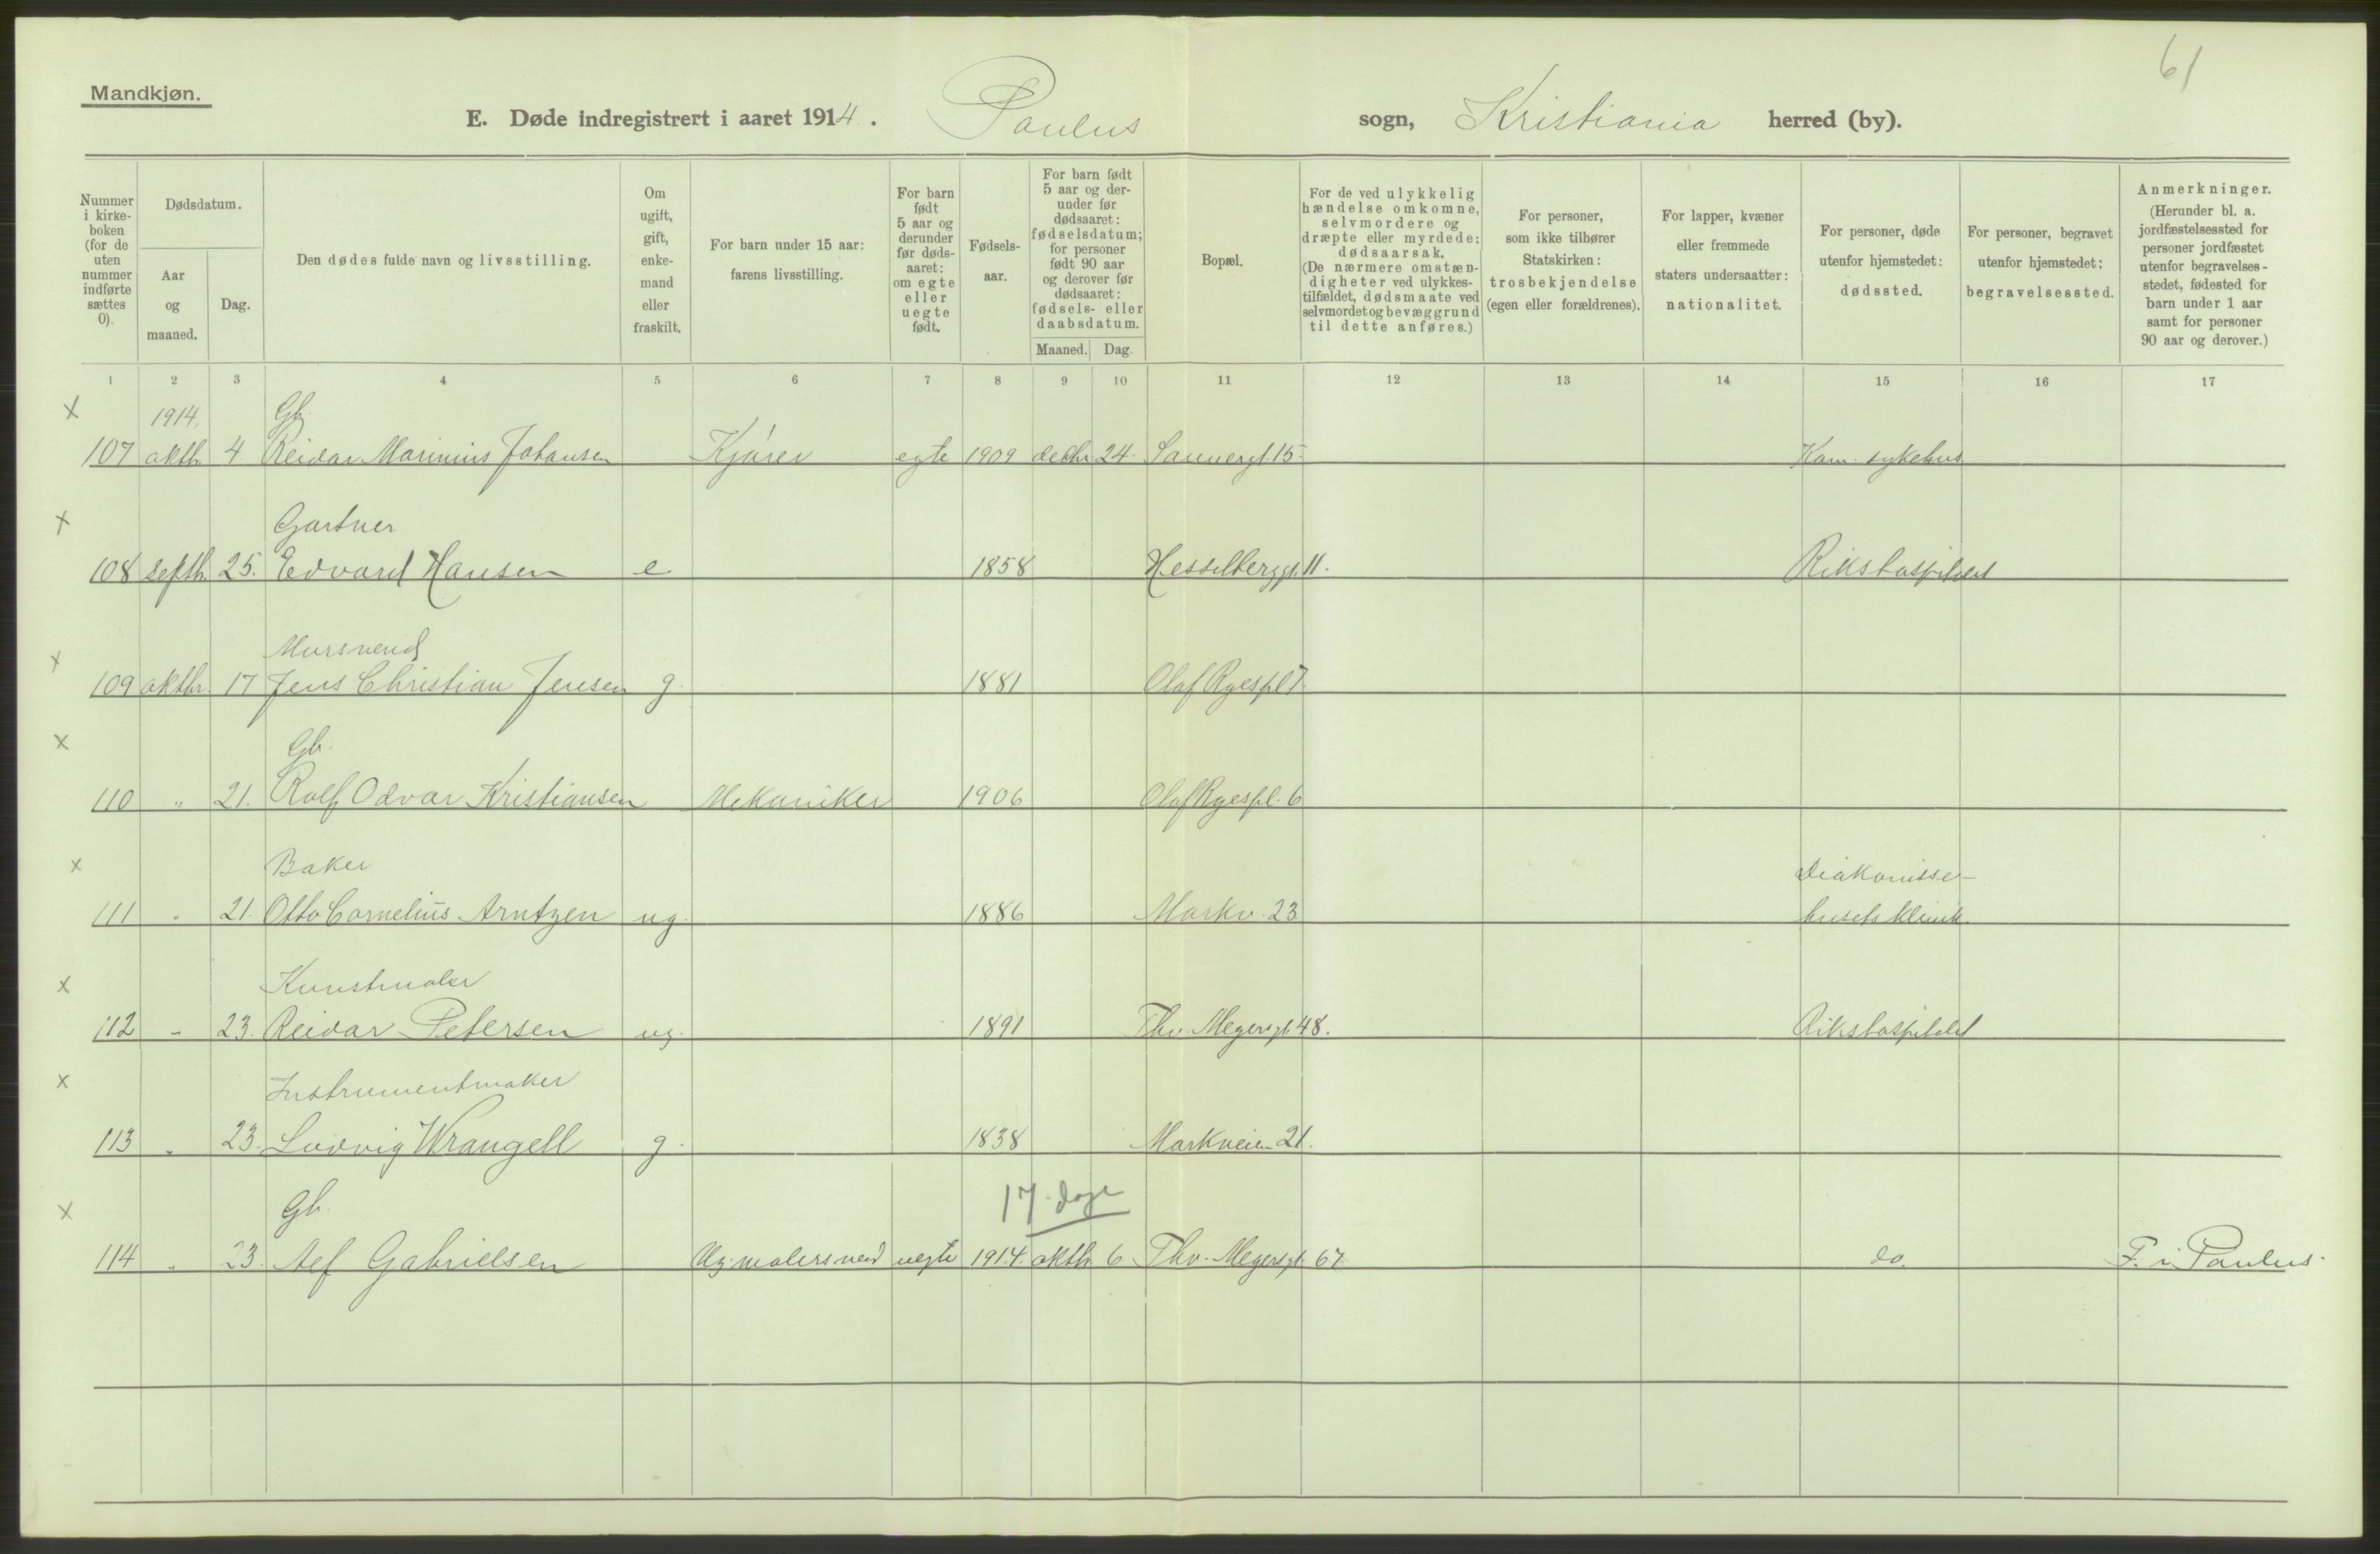 61
Mandkjøn.
E. Døde indregistrert i aaret 1914. Paulus sogn, Kristiania herred (by).
Nummer i kirke-boken (for de uten nummer indførte sættes 0).
Dødsdatum.
Aar og maaned.
Dag.
Den dødes fulde navn og livsstilling.
Om ugift, gift, enke-mand eller fraskilt.
For barn under 15 aar: farens livsstilling.
For barn født 5 aar og derunder før døds-aaret: om egte eller uegte født.
Fødsels-aar.
For barn født 5 aar og der-under før dødsaaret: fødselsdatum; for personer født 90 aar og derover før dødsaaret: fødsels- eller daabsdatum.
Maaned. Dag.
Bopæl.
For de ved ulykkelig hændelse omkomne, selvmordere og dræpte eller myrdede: dødsaarsak. (De nærmere omstæn-digheter ved ulykkes-tilfældet, dødsmaate ved selvmordet og bevæggrund til dette anføres.)
For personer, som ikke tilhører Statskirken: trosbekjendelse (egen eller forældrenes).
For lapper, kvæner eller fremmede staters undersaatter: nationalitet.
For personer, døde utenfor hjemstedet: dødssted.
For personer, begravet utenfor hjemstedet: begravelsessted.
Anmerkninger. (Herunder bl. a. jordfæstelsessted for personer jordfæstet utenfor begravelses-stedet, fødested for barn under 1 aar samt for personer 90 aar og derover.)
1 2 3 4 5 6 7 8 9 10 11 12 13 14 15 16 17
x 1914. Gb.
107 oktb. 4 Reidar Marinius Johansen Kjører egte 1909 decbr 24. Sannergt. 15. Kom. sykehus
x Gartner
108 septb. 25. Edvard Hansen e 1858 Hesselberggt. 11. Rikshospitalet
x Mursvend
109 oktbr. 17 Jens Christian Jensen g. 1881 Olaf Ryespl 7.
x Gb.
110 " 21. Rolf Odvar Kristiansen Mekaniker 1906 Olaf Ryespl. 6
x Baker Diakonisse-
111 " 21. Otto Cornelius Arntzen ug. 1886 Markv. 23 husets klinik.
x Kunstmaler
112 " 23. Reidar Petersen ug. 1891 Thv. Meyersgt. 48. Rikshospitalet
x Instrumentmaker
113 " 23. Ludvig Wrangell g. 1838 Markveien 21.
x Gb. 17 dage
114 " 23. Alf Gabrielsen Ug. malersvend uegte 1914. oktb. 6. Thv. Meyersgt. 67. do. F. i Paulus.